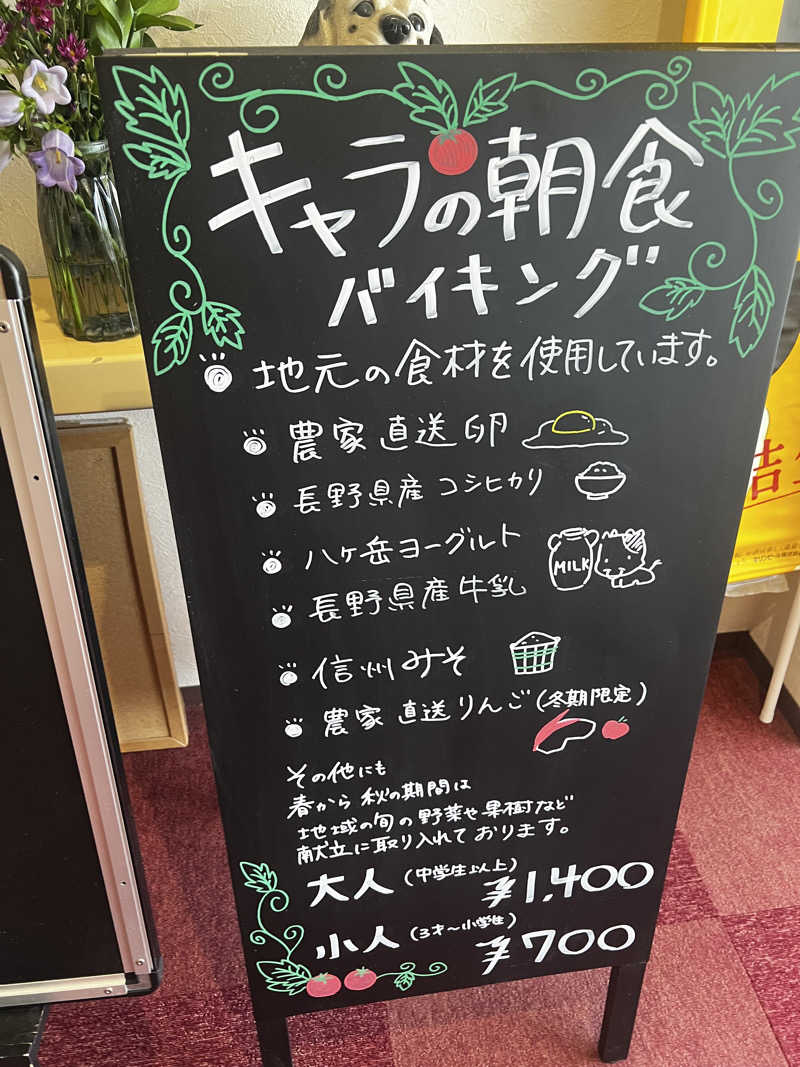 キャラの朝食
バイキング
地元の食材を使用しています。
農家直送卵
長野県産コシヒカリ
八ヶ岳ヨーグルト
MILK
長野県産牛乳
信州みそ
農家直送りんご(冬期限定)
その他にも
春から秋の期間は
地域の旬の野菜や果樹など
献立に取り入れております。
大人(中学生以上) ¥1,400
小人(3才～小学生) ¥700